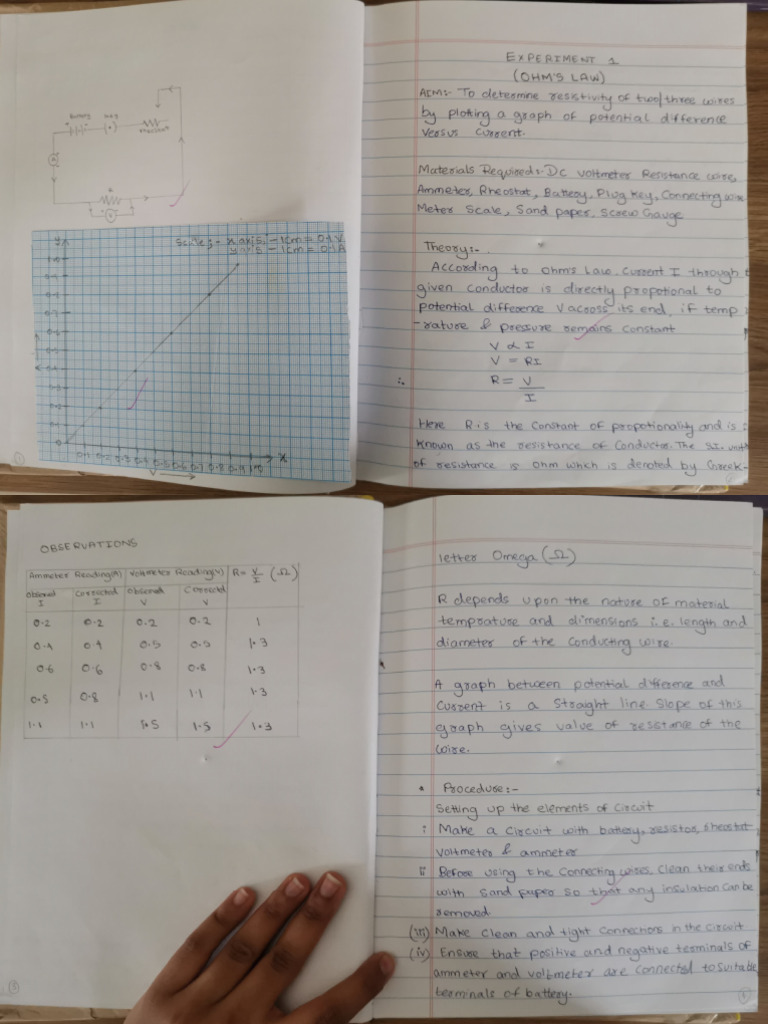 Battery Key
Rheostat
A
R
V
Scale:- x axis - 1cm = 0.1 V
y axis - 1cm = 0.1 A
y
1.0
0.2
0
0.1 0.2 0.3 0.4 0.5 0.6 0.7 0.8 0.9 1.0
x
V
EXPERIMENT 1
(OHM'S LAW)
AIM:- To determine resistivity of two/three wires
by ploting a graph of potential difference
versus current.
Materials Required:- DC voltmeter Resistance wire,
Ammeter, Rheostat, Battery, Plug Key, Connecting wire
Meter Scale, Sand paper, Screw Gauge
Theory:-
According to Ohm's Law. Current I through
given conductor is directly propotional to
potential difference V across its end, if temp
-rature & pressure remains constant
V ∝ I
V = RI
∴ R = V
I
Here R is the Constant of propotionality and is
known as the resistance of Conductor. The S.I. unit
of resistance is ohm which is denoted by Greek-
OBSERVATIONS
Ammeter Reading(A) Voltmeter Reading(V) R = V/I (Ω)
Observed I Corrected I Observed V Corrected V
0.2 0.2 0.2 0.2 1
0.4 0.4 0.5 0.5 1.3
0.6 0.6 0.8 0.8 1.3
0.8 1.1 1.1 1.3
1.1 1.1 1.5 1.5 1.3
letter Omega (Ω)
R depends upon the nature of material
temprature and dimensions i.e. length and
diameter of the conducting wire.
A graph between potential difference and
Current is a Straight line Slope of this
graph gives value of resstance of the
wire.
• Procedure:-
Setting up the elements of Circuit
: Make a Circuit with battery, resistor, rheostat
voltmeter & ammeter
ii Before using the Connecting wires, Clean their ends
with Sand paper so that any insulation Can be
removed
(iii) Make Clean and tight Connections in the Circuit
(iv) Ensure that positive and negative terminals of
ammeter and voltmeter are connected to suitable
terminals of battery.